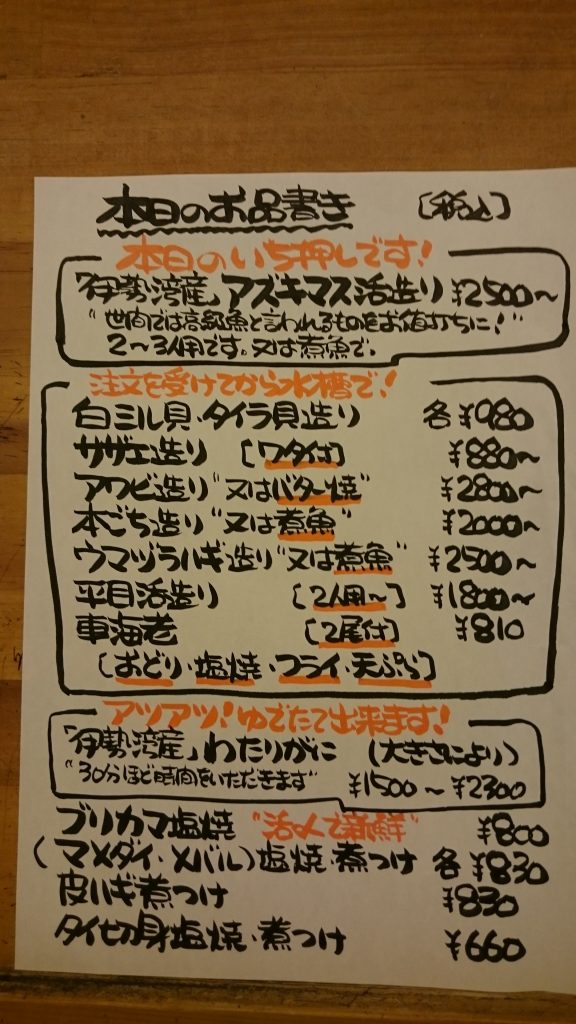 本日のお品書き [税込]
本日のいち押しです!
「伊勢湾産」アズキマス活造り ¥2500〜
"世間では高級魚と言われるものをお値打ちに!"
2〜3人用です。又は煮魚で。
注文を受けてから水槽で!
白ミル貝・タイラ貝造り 各¥980
サザエ造り [ワタ付] ¥880〜
アワビ造り"又はバター焼" ¥2800〜
本ごち造り"又は煮魚" ¥2000〜
ウマヅラハギ造り"又は煮魚" ¥2500〜
平目活造り [2人用〜] ¥1800〜
車海老 [2尾付] ¥810
[おどり・塩焼・フライ・天ぷら]
アツアツ!ゆでたて出来ます!
「伊勢湾産」わたりがに (大きさにより)
"30分ほど時間をいただきます" ¥1500〜¥2300
ブリカマ塩焼 "活〆で新鮮" ¥800
(マメダイ・メバル)塩焼・煮つけ 各¥830
皮ハギ煮つけ ¥830
タイ切身塩焼・煮つけ ¥660